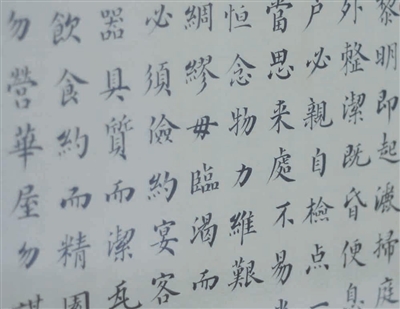 黎明即起灑掃庭
外整潔既昏便息
户必親自檢点一
當思来處不易
恒念物力維艱
綢繆毋臨渴而
必須儉約宴客
器具質而潔瓦
飲食約而精園
勿營華屋勿謀